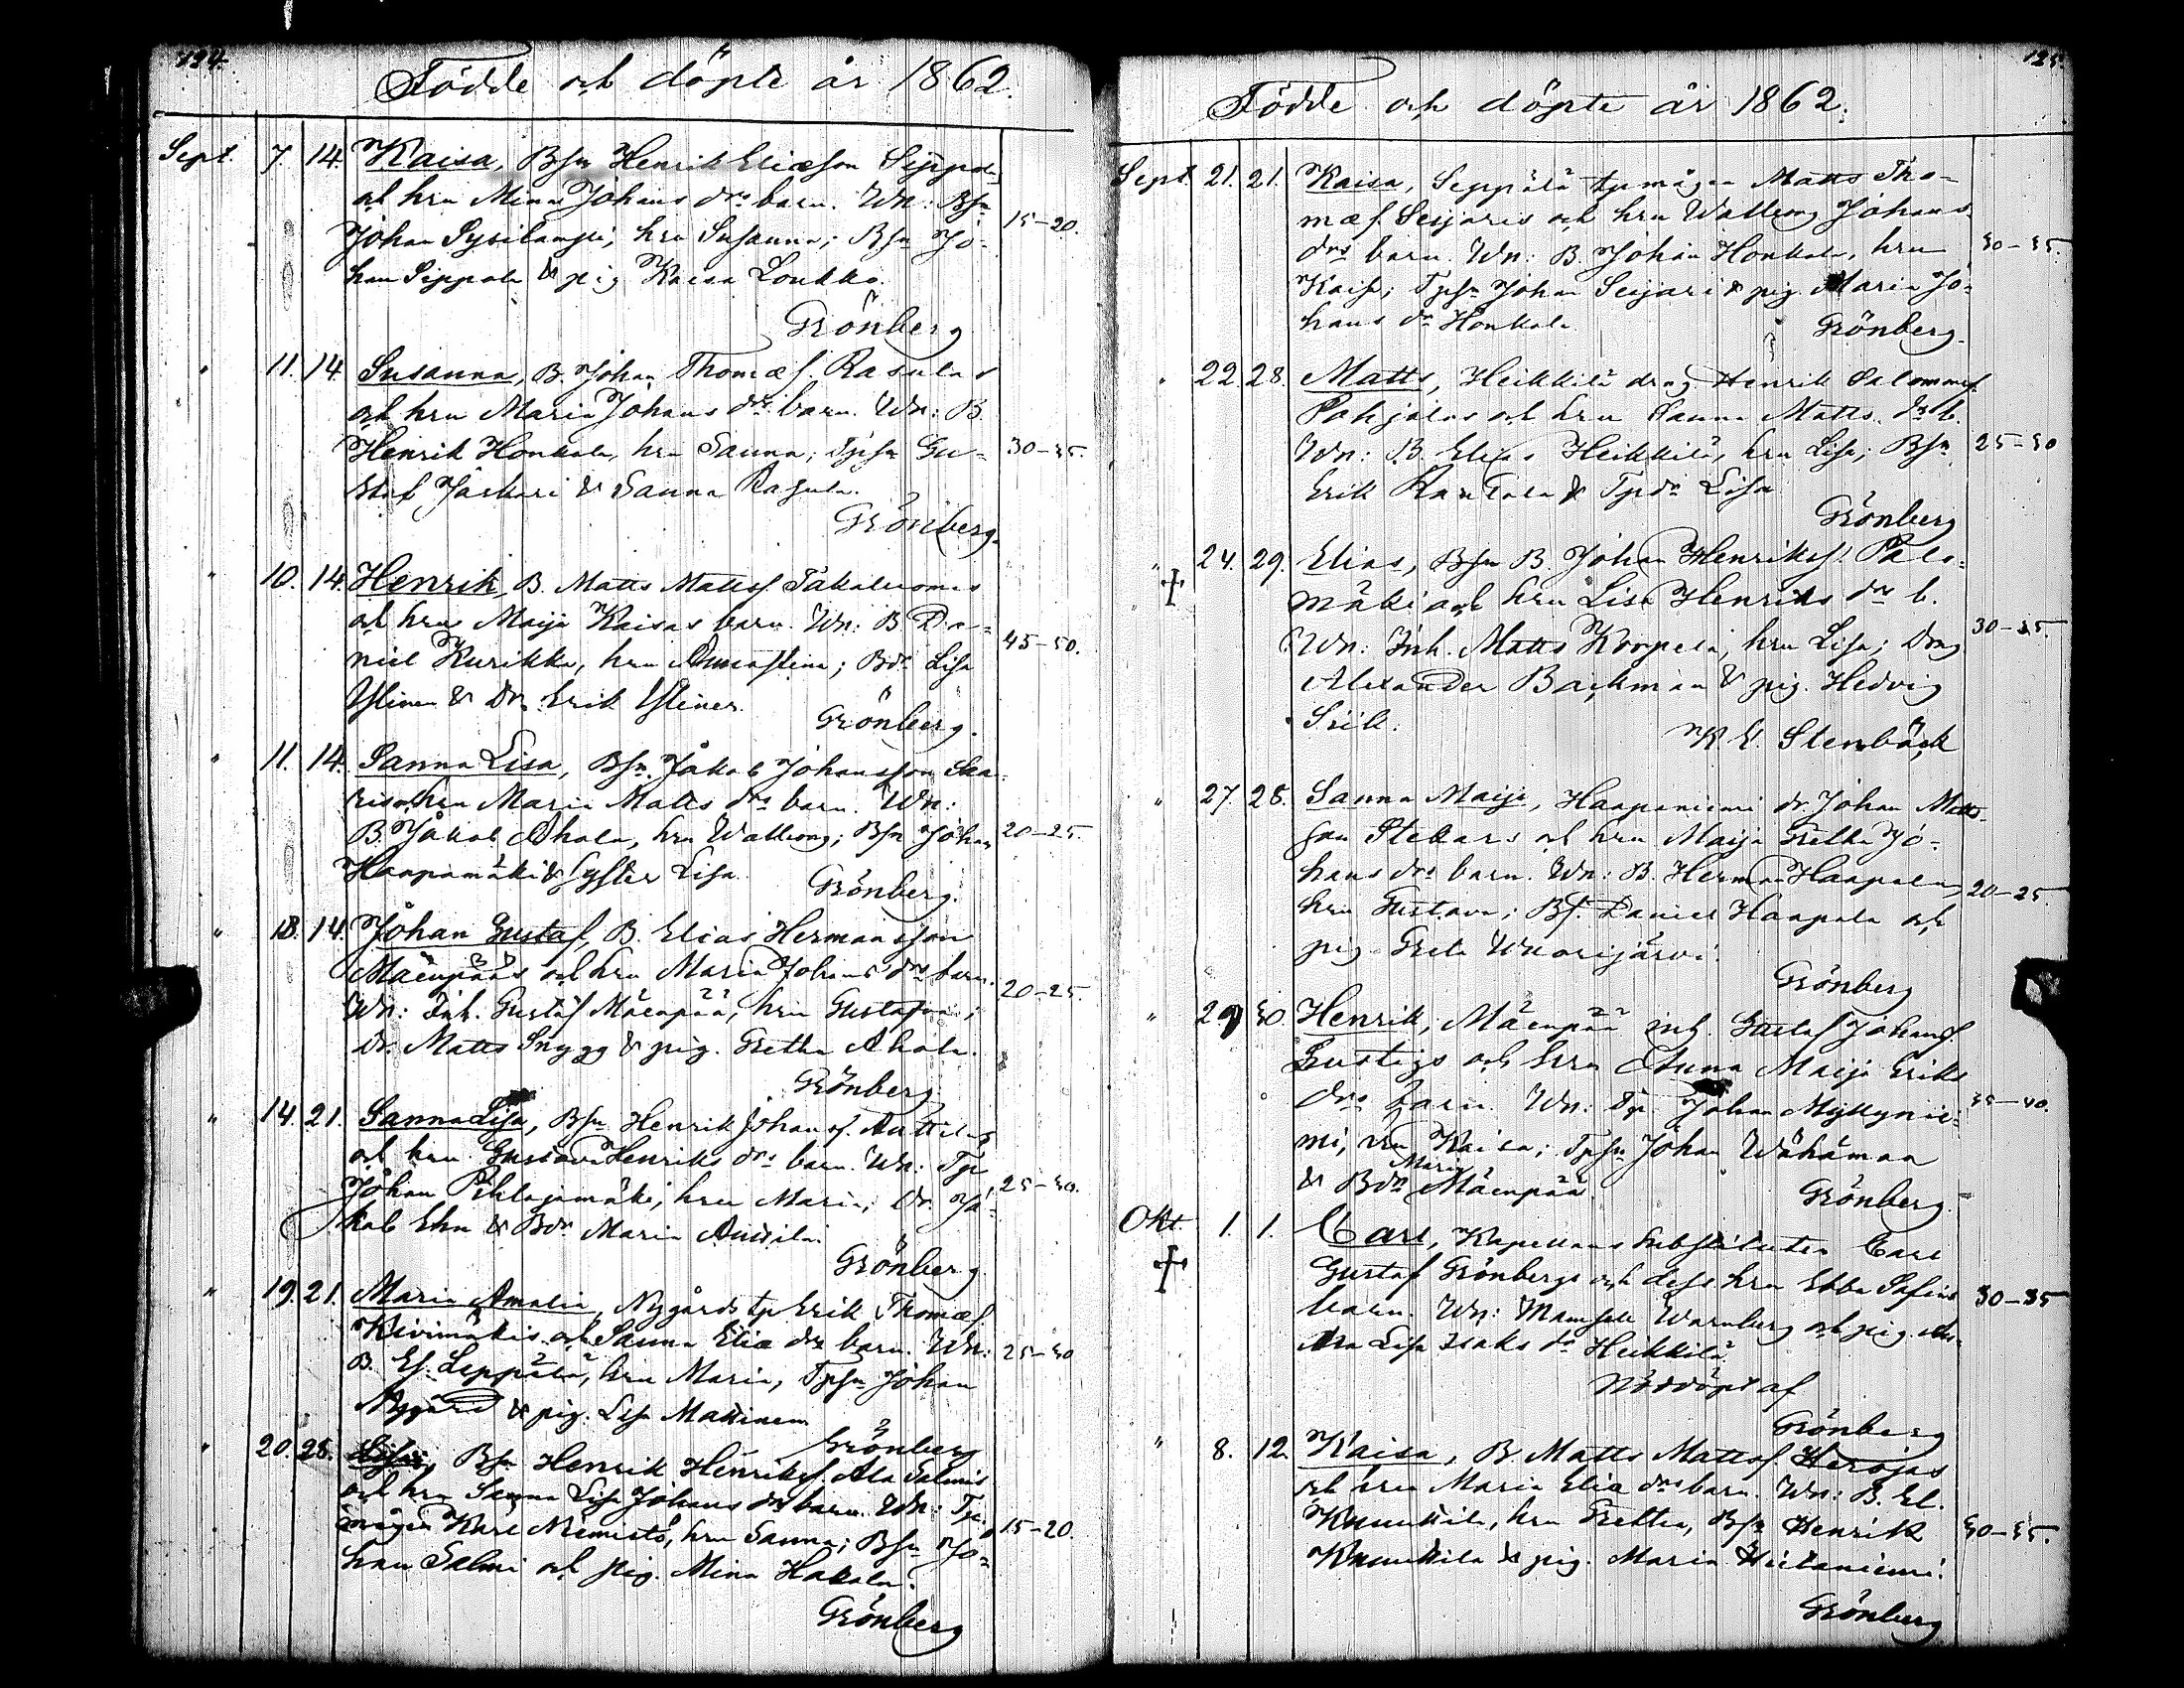 124.
Födde och döpte år 1862.
Sept. 7. 14. Kaisa, Bsn Henrik Eliæson Sippola
och hru Mina Johans drs barn. Wn: Bsn
Johan Pysilampi, hru Susanna; Bsn Jo- 15-20.
han Sippola & pig Kaisa Loukko.
Grönberg
" 11. 14. Susanna, B. Johan Thomæs. Rasulas
och hru Maria Johans drs barn. Wn: B.
Henrik Honkala, hru Sanna; Tpsn Gu- 30-35.
staf Jäskari & Sanna Rasula.
Grönberg.
" 10. 14. Henrik, B. Matts Mattss. Takaluomas
och hrus Maija Kaisas barn. Wn: B Da-
niel Kurikka, hru Annastina; Bdr Lisa 45-50.
Ylinen & Dr. Erik Ylinen.
Grönberg.
" 11. 14. Sanna Lisa, Bsn. Jakob Johansson
och hru Maria Matts drs barn. Wn:
B. Jakob Ahola, hru Wallborg; Bsn Johan 20-25.
Haapamäki & Syster Lisa.
Grönberg.
" 13. 14. Johan Gustaf, B. Elias Hermansson
Mäenpääs och hru Maria Johans drs barn.
Wn: Inh. Gustaf Mäenpää, hru Gustafva; 20-25.
Dr. Matts Snygg & pig. Gretha Ahola.
Grönberg
" 14. 21. Sanna Lisa, Bsn Henrik Johanss. Anttilas
och hru Gustava Henriks drs barn. Wn: Tp
Johan Pihlajamäki, hru Maria; Dr. Ja- 25-30.
kob Ehn & Bdr Maria Anttila.
Grönberg.
" 19. 21. Maria Amalia, Nygårds tp Erik Thomæs.
Kivimäkis och Sanna Eliæ drs barn. Wn: 25-30
B. Es. Leppälä, hru Maria, Tpsn Johan
Nygård & pig. Lisa Mattinen
Grönberg
" 20. 28. Lisa, Bsn Henrik Henrikss. Ala Salmis
och hru Sanna Lisa Johans drs barn. Wn: Tp.
mågen Karl Niemistö, hru Sanna; Bsn Jo- 15-20.
han Salmi och pig. Mina Hakala.
Grönberg
125.
Födde och döpte år 1862.
Sept. 21. 21. Kaisa, Seppälä tpmågen Matts Tho-
mæs. Seijaris och hru Wallborg Johans
drs barn. Wn: B. Johan Honkala, hru 30-35.
Kaisa; Tpsn Johan Seijari & pig. Maria Jo-
hans dr Honkala
Grönberg.
" 22. 28. Matts, Heikkilä dreng Henrik Salomonss.
Pohjolas och hru Sanna Matts. dr b.
Wn: B. Elias Heikkilä, hru Lisa; Bsn 25-30
Erik Rautala & Tpdr Lisa
Grönberg
" 24. 29. Elias, Bsn B. Johan Henrikss. Palo-
mäki och hru Lisa Henriks drs b.
Wn: Inh. Matts Koopela, hru Lisa; Dreng 30-35.
Alexander Backman & pig. Hedvig
Siik.
K E. Stenbäck
" 27. 28. Sanna Maija, Haapaniemi dr Johan Matts-
son Stekars och hru Maija Gretha Jo-
hans drs barn. Wn: B. Herman Haapala, 20-25.
hru Gustava; Bs. Daniel Haapala och
pig Greta Wuorijärvi.
Grönberg
" 29 30. Henrik, Mäenpää inh. Gustaf Johanss.
Lustigs och hru Anna Maija Eriks
drs barn. Wn: Tp. Johan Myllynie- 35-40.
mi, hru Kaisa; Tpsn Johan Wähämaa
& Bdr Maria Mäenpää.
Grönberg.
Okt. 1. 1. Carl, Kapellans Substituten Carl
Gustaf Grönbergs och dess hru Ebba Sofias
barn. Wn: Mamsell Warnberg och pig. An- 30-35
na Lisa Isaks dr Heikkilä.
Nöddöpt af
Grönberg
" 8. 12. Kaisa, B. Matts Mattss. Herojas
och hru Maria Eliæ drs barn. Wn: B. El.
Knuuttila, hru Gretha, Bsn Henrik 30-35.
Knuuttila & pig. Maria Hietaniemi.
Grönberg